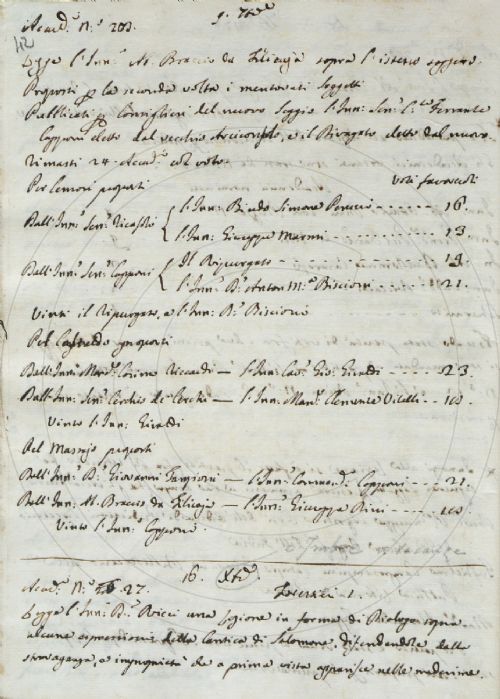 9. Xbre
Accad.i N.o 203.
112
Legge l'Inn.o M. Braccio da Filicaja sopra l'istesso soggetto.
Proposti p la seconda volta i mentovati soggetti
Pubblicati p Consiglieri del nuovo Seggio l'Inn: Sen.e Ferrante
Capponi eletto dal vecchio Arciconsolo, e il Rinvigato eletto dal nuovo.
Rimasti 24. Accad.i col voto.
Per Censori proposti voti favorevoli
Dall'Inn.o Sen.e Ricasoli l'Inn: Bindo Simone Peruzzi 16.
l'Inn: Giuseppe Marmi 13.
Dall'Inn.o Sen.e Capponi Il Ripurgato 19.
l'Inn.o D.r Anton M.a Biscioni 21.
Vinti il Ripurgato, e l'Inn: D.r Biscioni
Pel Castaldo proposti
Dall'Inn.o Mar.e Cosimo Riccardi — l'Inn: Cav.e Gio: Giraldi 23.
Dall'Inn: Sen.e Cerchio de Cerchi — l'Inn: Mar.e Clemente Vitelli 10.
Vinto l'Inn: Giraldi
Pel Massajo proposti
Dall'Inn.o D.r Giovanni Targioni — l'Inn: Commend.e Capponi 21.
Dall'Inn: M. Braccio da Filicaja — l'Inn.o Giuseppe Bini 10.
Vinto l'Inn.o Capponi.
16. Xbre.
Accad.i N.o 27. Esercizi 1.
Legge l'Inn: D.r Ricci una Lezione in forma di Dialogo sopra
alcune espressioni della Cantica di Salomone difendendole dalla
stravaganza, e improprietà che a prima vista apparisce nelle medesime.